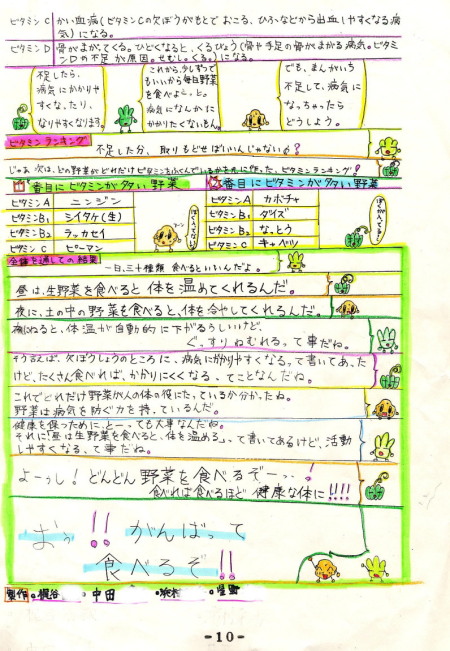 ビタミンC かい血病(ビタミンCの欠ぼうがもとで おこる、ひふなどから出血しやすくなる病
気)になる。
ビタミンD 骨がまがってくる。ひどくなると、くるびょう(骨や手足の骨がまがる病気。ビタミ
ンDの不足が原因。せむし。くる。)になる。
不足したら、
病気にかかりや
すくなったり、
なりやすくなります。
これから、少しずつで
もいいから毎日野菜
を食べよっ、と。
病気になんかに
かかりたくないもん。
でも、まんがいち
不足して、病気に
なっちゃったら
どうしよう。
ビタミンランキング
不足した分、取りもどせばいいんじゃない?
じゃあ次は、どの野菜がどれだけビタミンをふくんでいるか
ビタミンランキング!
1番目にビタミンが多い野菜
ビタミンA ニンジン
ビタミンB1 シイタケ(生)
ビタミンB2 ラッカセイ
ビタミンC ピーマン
2番目にビタミンが多い野菜
ビタミンA カボチャ
ビタミンB1 ダイズ
ビタミンB2 なっとう
ビタミンC キャベツ
全体を通しての結果
一日、三十種類 食べるといいんだよ。
昼は、生野菜を食べると 体を温めてくれるんだ。
夜に、土の中の野菜を食べると、体を冷やしてくれるんだ。
夜ねると、体温が自動的に下がるらしいけど、
ぐっすりねむれるって事だね。
そう言えば、欠ぼうしょうのところに、病気にかかりやすくなるって書いてあった
けど、たくさん食べれば、かかりにくくなる、てことなんだね。
これでどれだけ野菜が人の体の役にたっているか分かったね。
野菜は病気を防ぐ力を持っているんだ。
健康を保つために、とーっても大事なんだね。
それに「昼は生野菜を食べると、体を温める」って書いてあるけど、活動
しやすくなるって事だね。
よーっし!どんどん野菜を食べるぞーっ!
食べれば食べるほど 健康な体に!!!!
おぅ!!がんばって
食べるぞ!!
製作 ・梶谷 ・中田 ・ ・星野
-10-